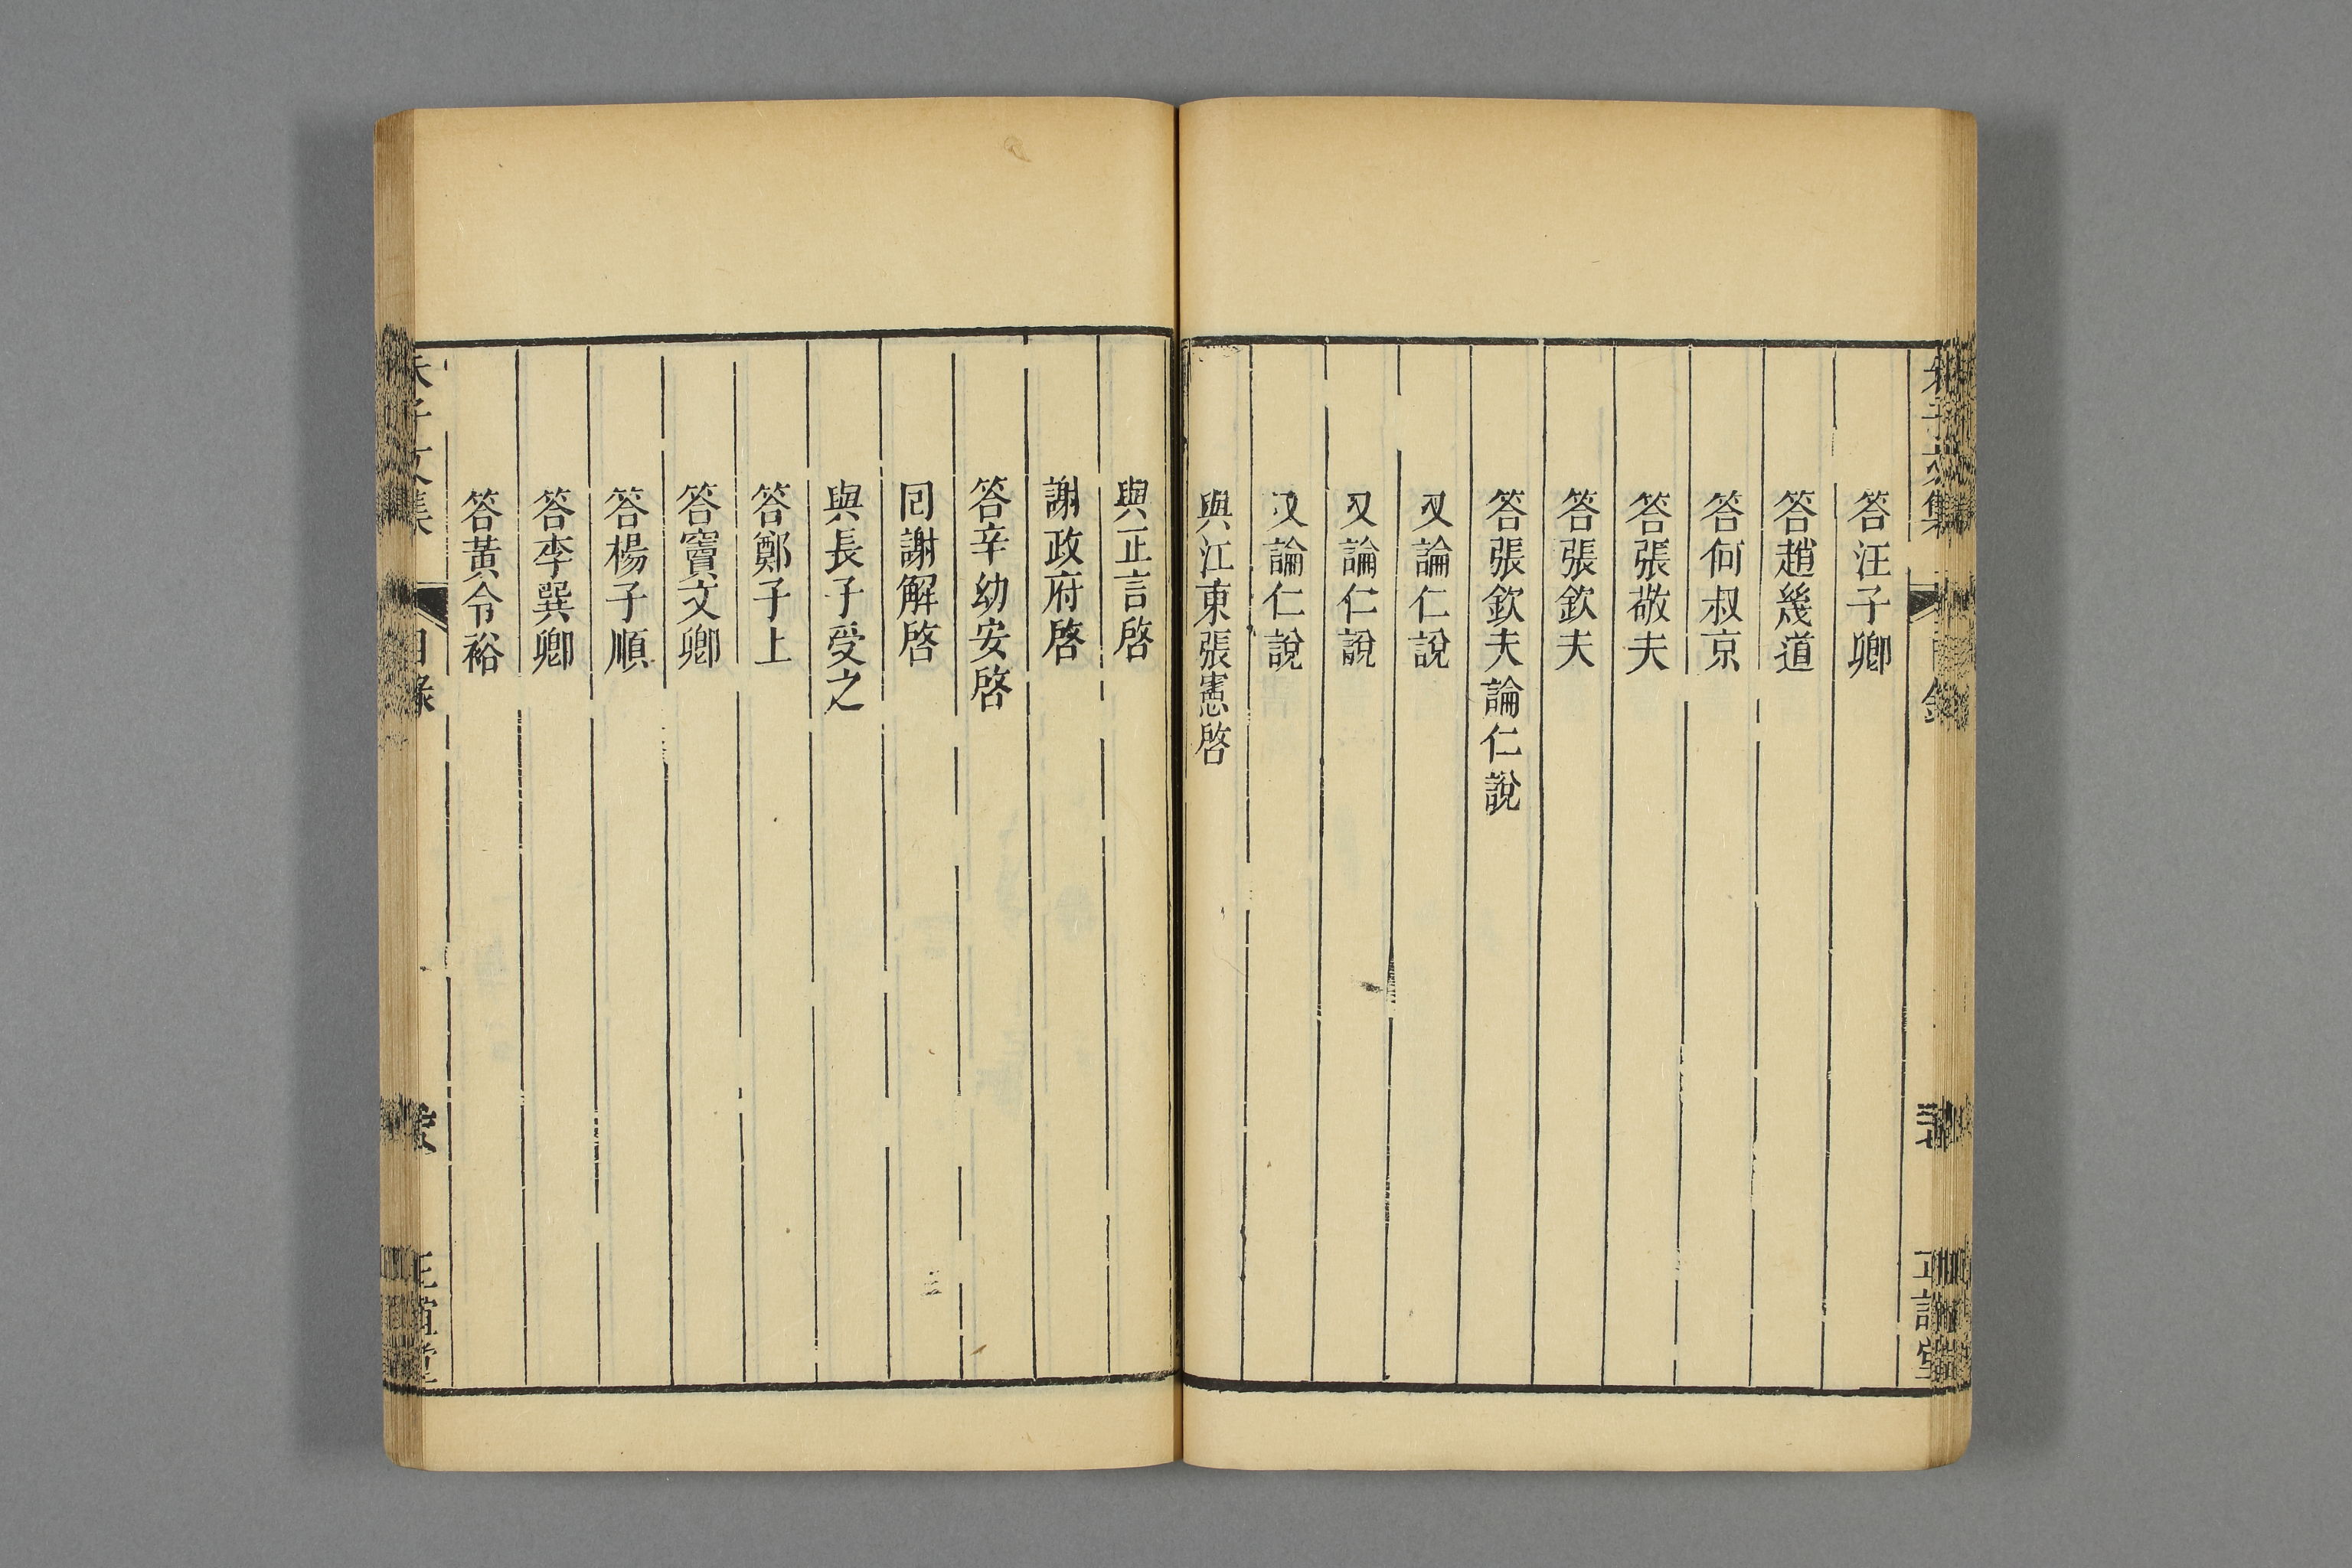 朱子文集 目錄 正誼堂
答汪子卿
答趙幾道
答何叔京
答張敬夫
答張欽夫
答張欽夫論仁說
又論仁說
又論仁說
又論仁說
與江東張憲啓
與正言啓
謝政府啓
答辛幼安啓
囘謝解啓
與長子受之
答鄭子上
答竇文卿
答楊子順
答李巽卿
答黃令裕
朱子文集 目錄 正誼堂